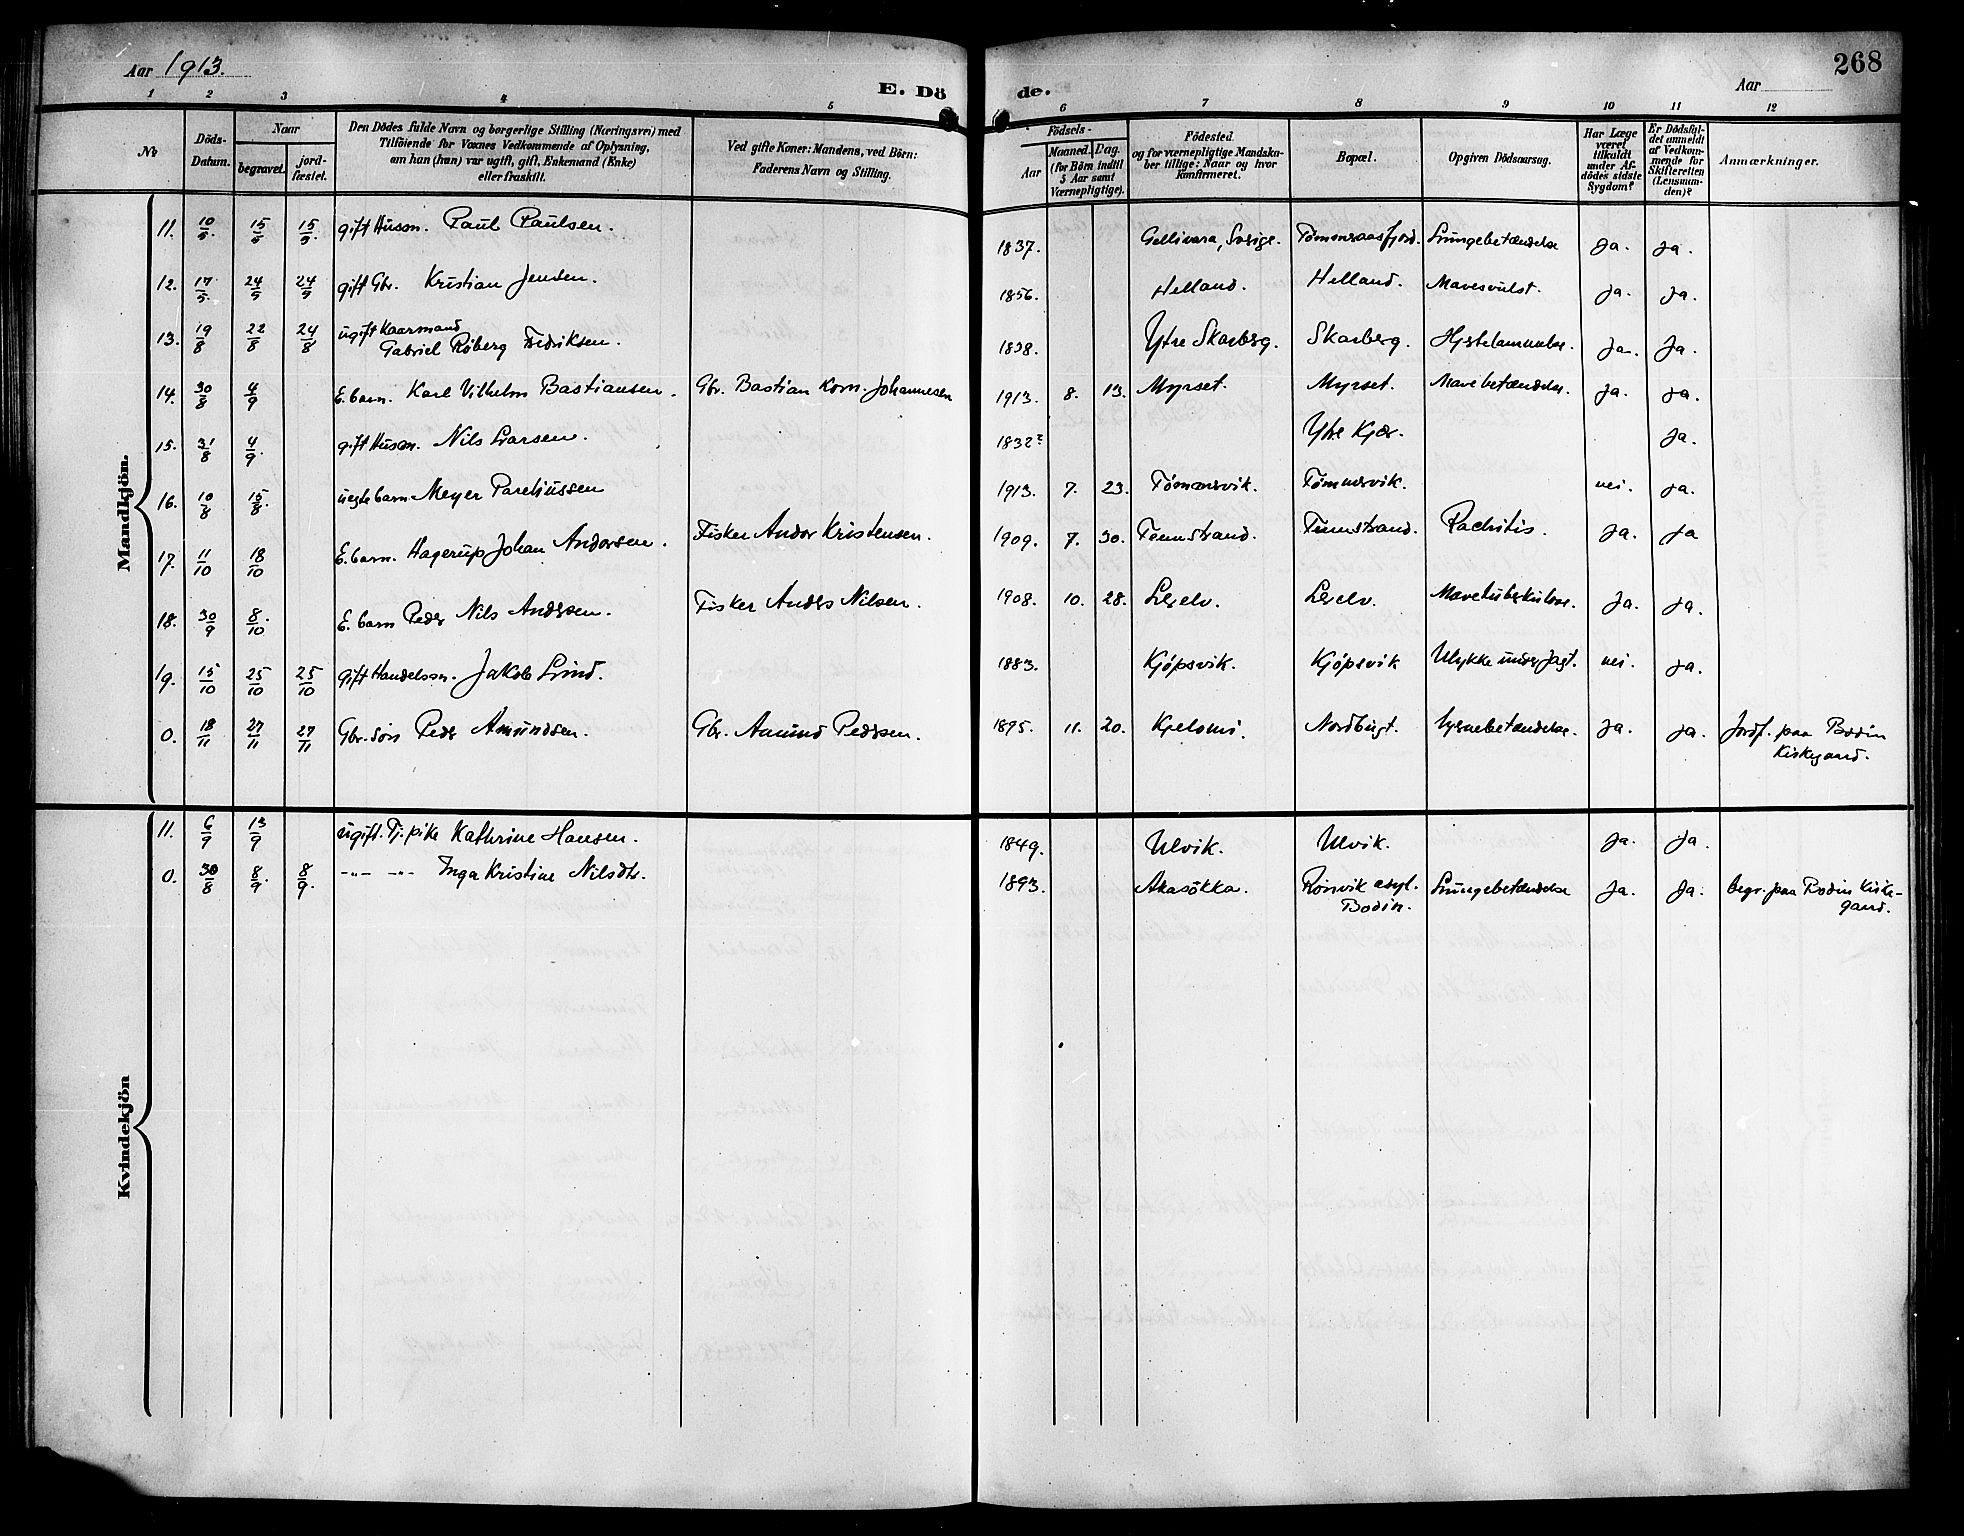 Aar 1913.
E. Dö
de.
Aar
268
1 2 3 4 5 6 7 8 9 10 11 12
No
Döds-
Datum.
Naar
begravet.
jord-
fæstet.
Den Dödes fulde Navn og borgerlige Stilling (Næringsvei) med
Tilföiende for Voxnes Vedkommende af Oplysning,
om han (hun) var ugift, gift, Enkemand (Enke)
eller fraskilt.
Ved gifte Koner: Mandens, ved Börn:
Faderens Navn og Stilling.
Födsels-
Aar
Maaned. Dag.
(for Börn indtil
5 Aar samt
Værnepligtige).
Födested
og for værnepligtige Mandska-
ber tillige: Naar og hvor
konfirmeret.
Bopæl.
Opgiven Dödsaarsag.
Har Læge
været
tilkaldt
under Af-
dödes sidste
Sygdom?
Er Dödsfal-
det anmeldt
af Vedkom-
mende for
Skifteretten
(Lensman-
den)?
Anmærkninger.
Mandkjön.
11. 10/5. 15/5 15/5. gift Husm. Paul Paulsen. 1837. Gellivara, Sverige. Tømmeraasfjord. Lungebetændelse Ja. Ja.
12. 17/5. 24/5 24/5 gift Gbr. Kristian Jensen. 1856. Helland. Helland. Mavesvulst. Ja. Ja.
13. 19/8 22/8 24/8 ugift Kaarmand
Gabriel Røberg Fredriksen. 1838. Ytre Skarberg. Skarberg. Hjertelammelse. Ja. Ja.
14. 30/8 4/9 E. barn. Karl Vilhelm Bastiansen. Gbr. Bastian Korn. Johannesen 1913. 8. 13. Myrset. Myrset. Mavebetændelse. Ja. Ja.
15. 31/8 4/9. gift Husm. Nils Larsen. 1832? Ytre Kjær. Ja.
16. 10/8 15/8. uegte barn Meyer Pareliussen 1913. 7. 23. Tømmervik. Tømmervik. nei. Ja.
17. 11/10 18/10 E. barn. Hagerup Johan Andorsen. Fisker Andor Kristensen. 1909. 7. 30. Tennstrand. Tennstrand. Rachitis. Ja. Ja
18. 30/9 8/10. E. barn Peder Nils Andersen. Fisker Anders Nilsen. 1908. 10. 28. Lerelv. Lerelv. Mavetuberkulose. Ja. Ja.
19. 15/10 25/10 25/10 gift Handelsm. Jakob Lind. 1883. Kjøpsvik. Kjøpsvik Ulykke under Jagt. nei. Ja.
0. 18/11 27/11 27/11 Gbr. søn Peder Amundsen. Gbr. Amund Pedersen. 1895. 11. 20. Nordbugt. Hjernebetændelse. Ja. Ja. Jordf. paa Bodin
Kirkegaard.
Kvindekjön
11. 6/9 13/9 ugift. Tj. pike Kathrine Hansen. 1849. Ulvik. Ulvik. Ja. Ja.
0. 30/8 8/9. 8/9. -"- -"- Inga Kristine Nilsdtr. 1893. Akasökka. Rönvik asyl. Lungebetændelse Ja. Ja. begr. paa Bodin Kirke-
Bodin. gaard.